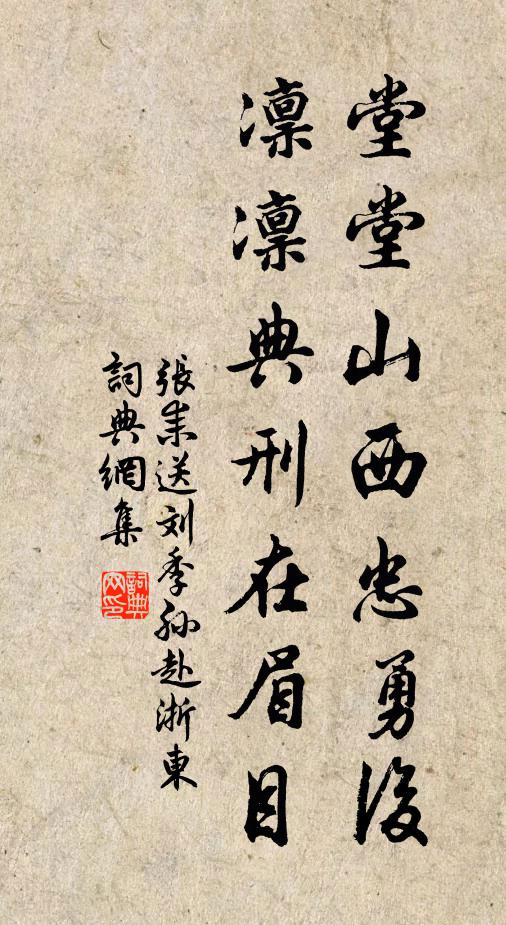 堂堂山西忠勇後
凛凛典刑在眉目
張耒送刘季孙赴浙東
詞典網集
詞典
网印